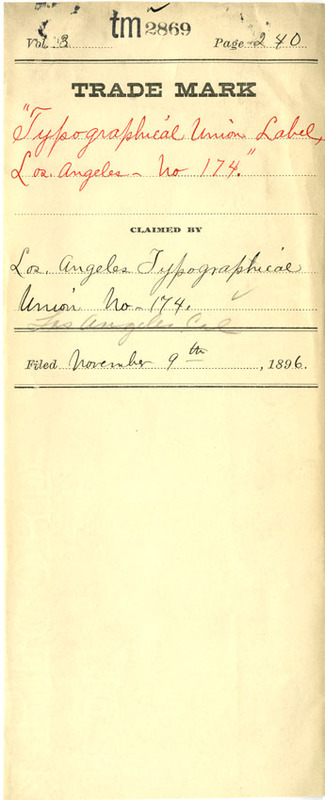 tm 2869
Vol. 3 Page 240
TRADE MARK
"Typographical Union Label,
Los Angeles - No 174."
CLAIMED BY
Los Angeles Typographical
Union No - 174.
Los Angeles Cal
Filed November 9th, 1896.